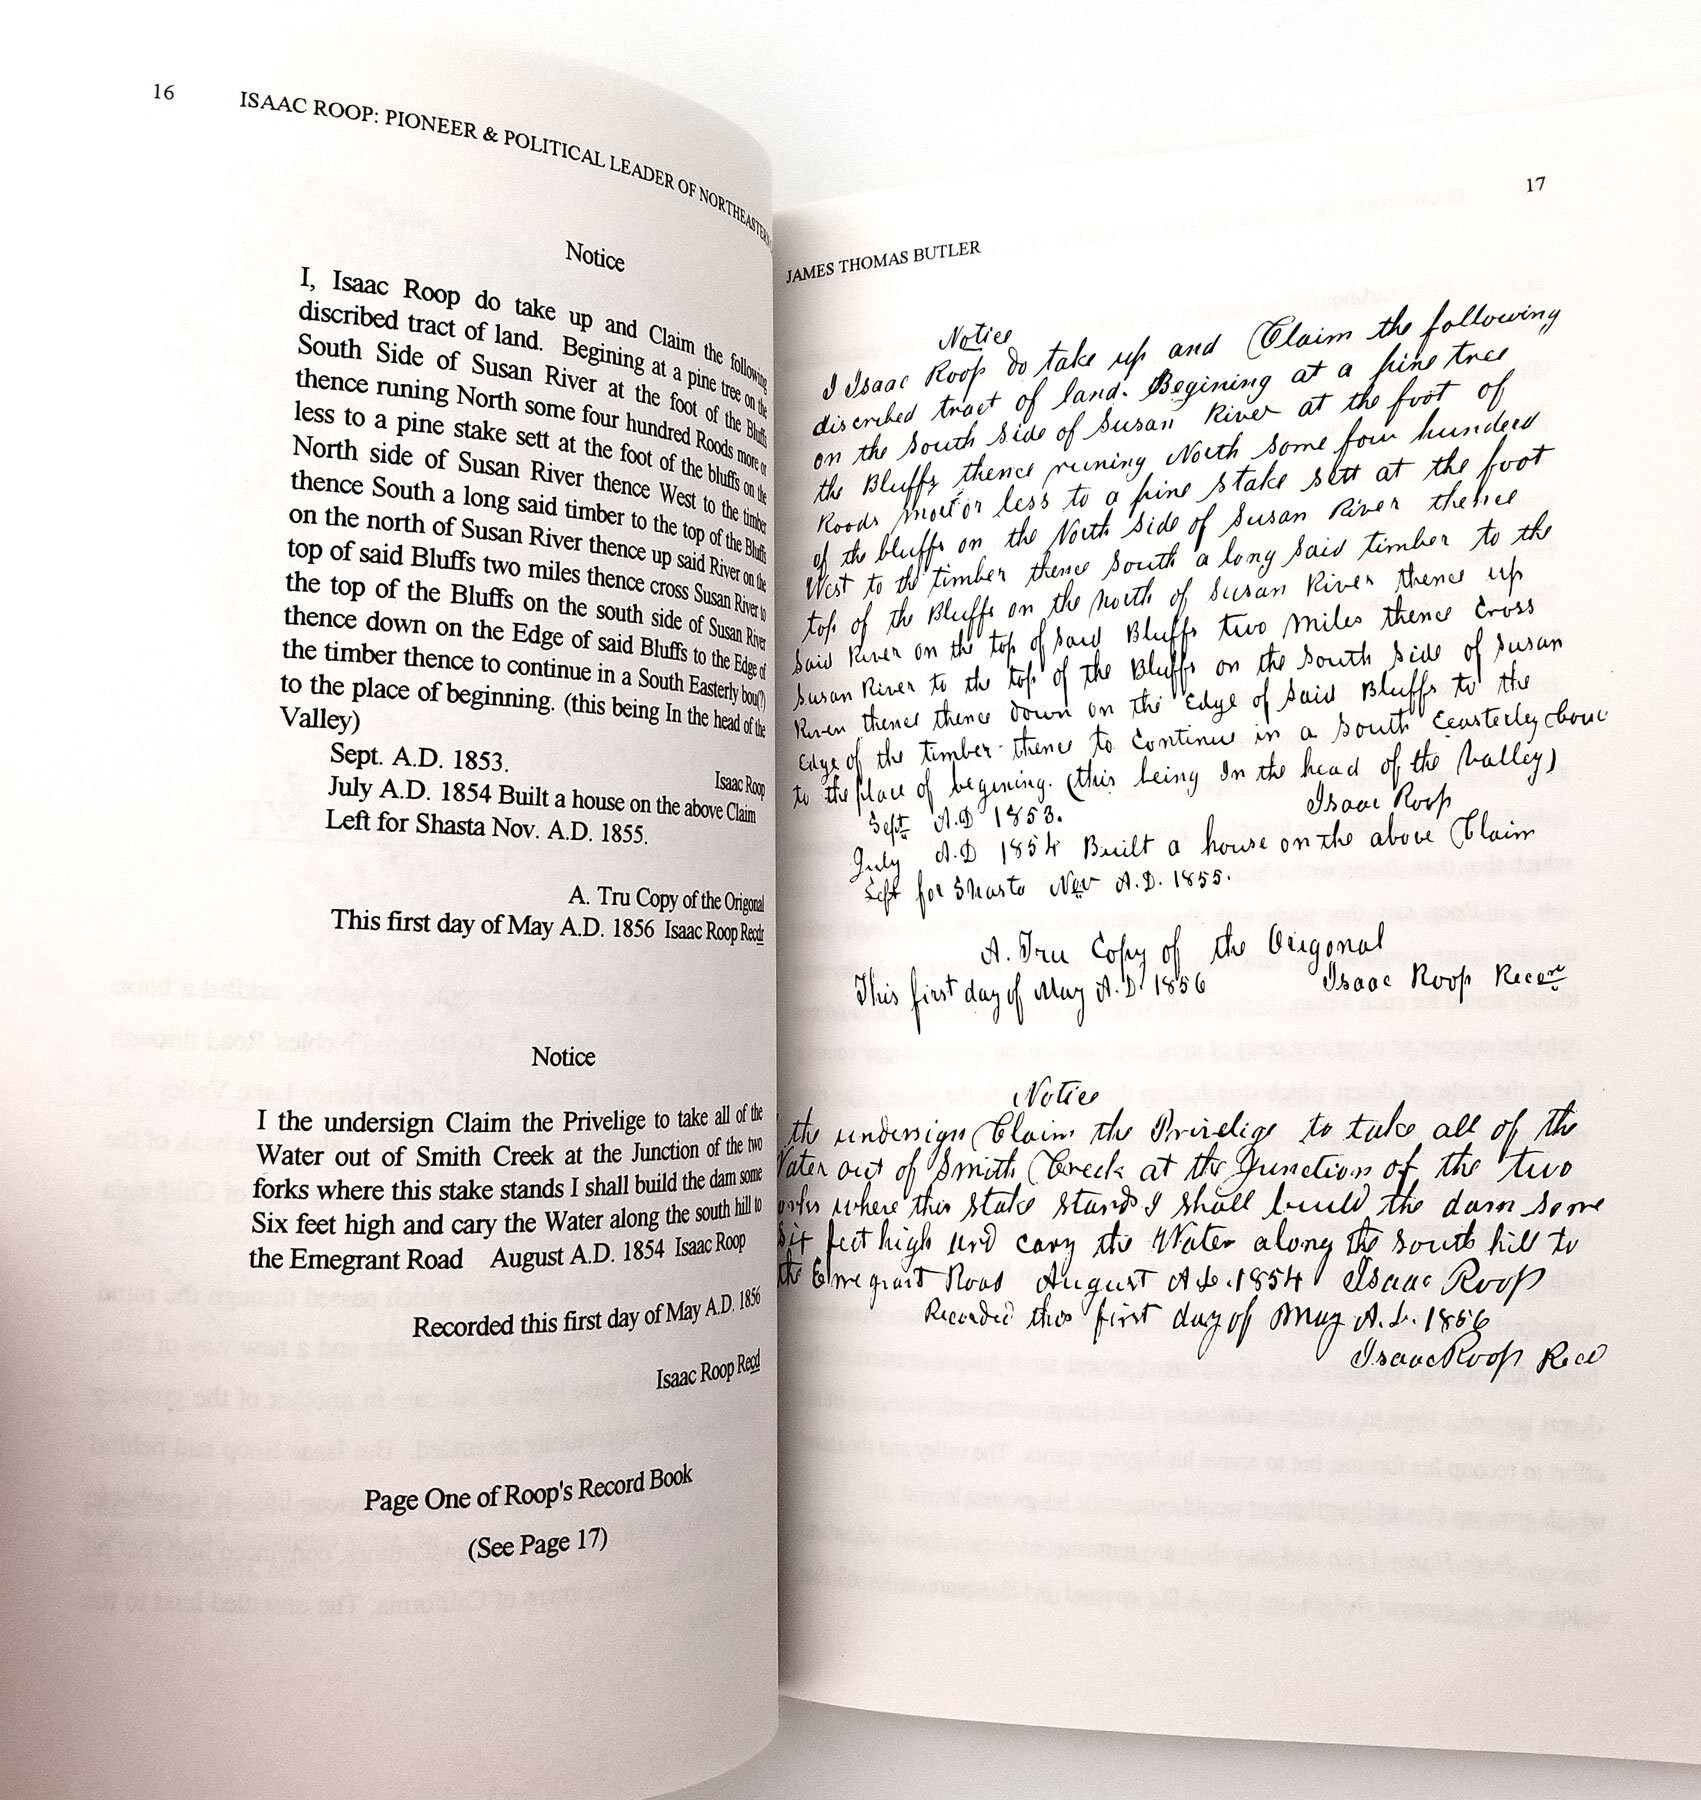 16
ISAAC ROOP: PIONEER & POLITICAL LEADER OF NORTHEASTERN
Notice
I, Isaac Roop do take up and Claim the following
discribed tract of land. Begining at a pine tree on the
South Side of Susan River at the foot of the Bluffs
thence runing North some four hundred Roods more or
less to a pine stake sett at the foot of the bluffs on the
North side of Susan River thence West to the timber
thence South a long said timber to the top of the Bluffs
on the north of Susan River thence up said River on the
top of said Bluffs two miles thence cross Susan River to
the top of the Bluffs on the south side of Susan River
thence down on the Edge of said Bluffs to the Edge of
the timber thence to continue in a South Easterly bou(?)
to the place of beginning. (this being In the head of the
Valley)
Sept. A.D. 1853.
Isaac Roop
July A.D. 1854 Built a house on the above Claim
Left for Shasta Nov. A.D. 1855.
A. Tru Copy of the Origonal
This first day of May A.D. 1856 Isaac Roop Recdr
Notice
I the undersign Claim the Privelige to take all of the
Water out of Smith Creek at the Junction of the two
forks where this stake stands I shall build the dam some
Six feet high and cary the Water along the south hill to
the Emegrant Road August A.D. 1854 Isaac Roop
Recorded this first day of May A.D. 1856
Isaac Roop Recd
Page One of Roop's Record Book
(See Page 17)
17
JAMES THOMAS BUTLER
Notice
I Isaac Roop do take up and Claim the following
discribed tract of land. Begining at a pine tree
on the South Side of Susan River at the foot of
the Bluffs thence runing North some four hundred
Roods mor or less to a pine stake sett at the foot
of the bluffs on the North Side of Susan River thence
West to the timber thence South a long said timber to the
top of the Bluffs on the north of Susan River thence up
said River on the top of said Bluffs two miles thence cross
Susan River to the top of the Bluffs on the south side of Susan
River thence thence down on the Edge of said Bluffs to the
Edge of the timber thence to continue in a South Easterley
to the place of begining. (this being In the head of the Valley)
Sept A.D 1853. Isaac Roop
July A.D 1854 Built a house on the above Claim
Left for Shasta Nov A.D. 1855.
A. Tru Copy of the Origonal
This first day of May A.D. 1856 Isaac Roop
Notice
the undersign Claim the Privelige to take all of the
Water out of Smith Creek at the Junction of the two
forks where this stake stands I shall build the dam some
Six feet high and cary the Water along the south hill to
the Emegrant Road August A.D. 1854 Isaac Roop
Recorded this first day of May A.D. 1856
Isaac Roop Recd